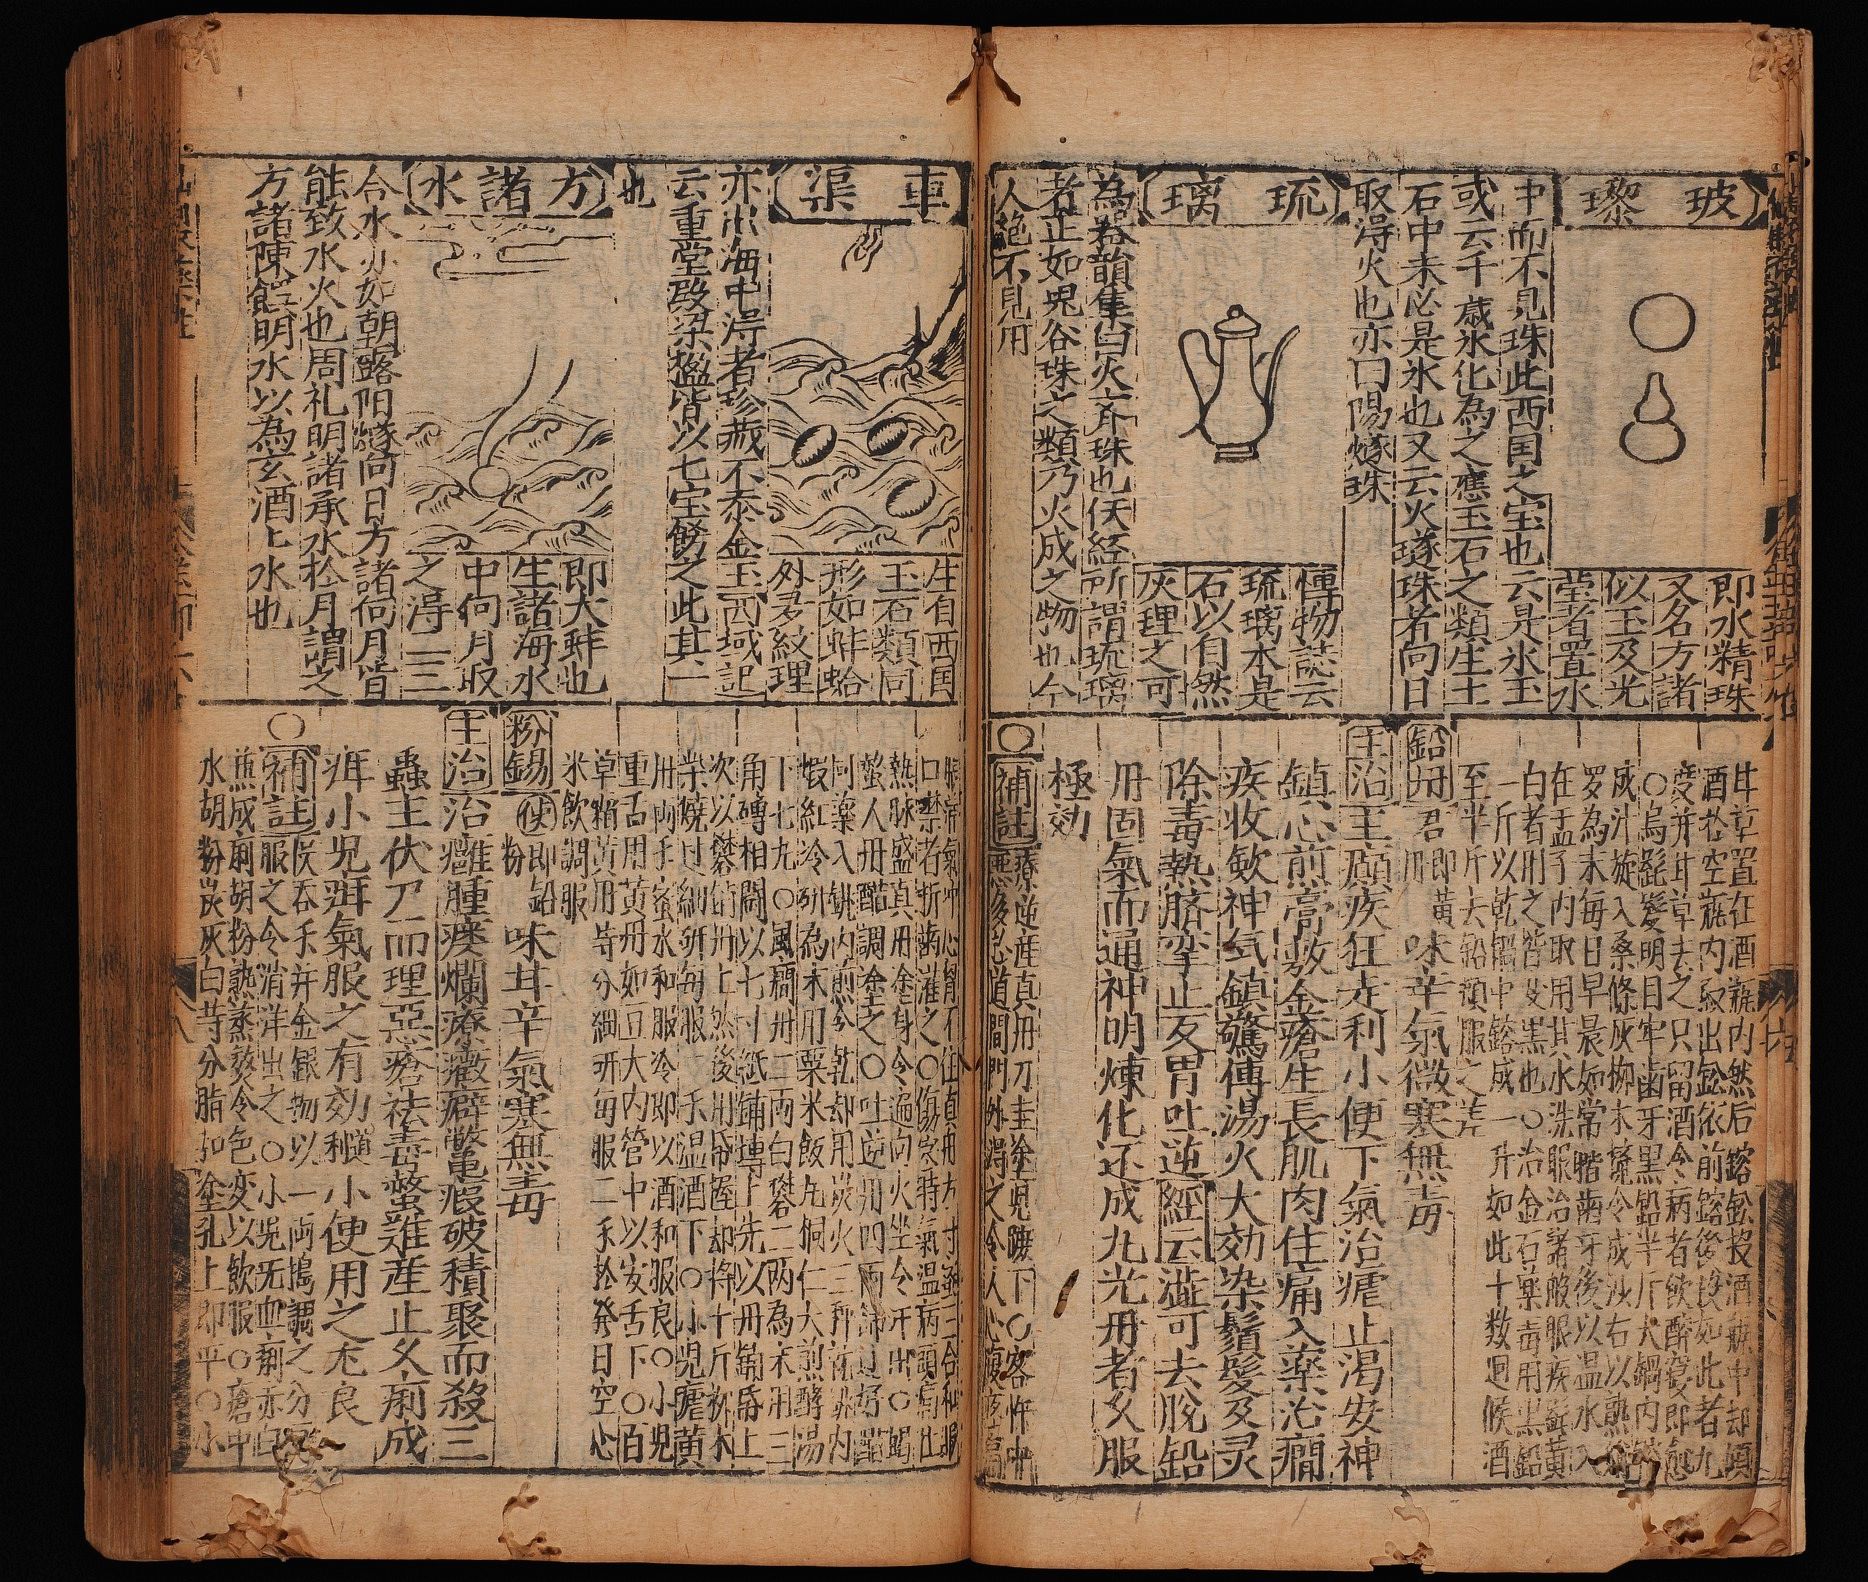 玻瓈
即水精珠
又名方諸
似玉及光
瑩者置水
中而不見珠此西国之宝也云是氷玉
或云千歲氷化為之應玉石之類生土
石中未必是氷也又云火璲珠者向日
取淂火也亦曰陽燧珠
琉璃
博物誌云
琉璃本是
石以自然
灰理之可
為器韻集曰火齊珠也佛經所謂琉璃
者正如鬼谷珠之類乃火成之物也今
人絶不見用
甘草置在酒瓶内然后鎔鈆投酒瓶中却傾
酒於空瓶内取出鈆依前鎔後投如此者九
度并甘草去之只留酒令病者飲醉寝即愈
○烏髭髮明目牢齒牙黑鉛半斤大鍋内鎔
成汁旋入桑條灰柳木攪令成沙右以熟絹
罗為末每日早晨如常揩齒牙後以温水入
在盂子内取用其水洗眼治諸般眼疾髭黃
白者用之皆变黑也○治金石藥毒用黑鉛
一斤以乾鍋中鎔成一升如此十数迴候酒
至半斤去鉛頓服之差
鉛丹君即黃丹味辛氣微寒無毒
主治主顛疾狂走利小便下氣治瘧止渴安神
鎮心煎膏敷金瘡生長肌肉住痛入藥治癇
疾收歛神氣鎮驚傳湯火大効染鬚髮及灵
除毒熱臍挛止反胃吐逆經云澁可去脫鉛
丹固氣而通神明煉化还成九光丹者久服
極効
○補註療逆産真丹刀圭塗児蹠下○客忤中
惡多於道間門外得之令人心腹絞痛
車渠
生自西国
玉石類同
形如蚌蛤
外多紋理
亦出海中淂者珍藏不泰金玉西域記
云重堂殿梁檻皆以七宝餙之此其一
也
方諸水
即大蚌也
生諸海水
中向月取
之淂二三
合水亦如朝露阳燧向日方諸向月皆
能致水火也周礼明諸承水於月謂之
方諸陳饌明水以為玄酒上水也
脹滿氣冲心胷不住真丹方寸匕三合和服
口噤者折齒灌之○傷寒時氣温病頭痛壮
熱脉盛真丹塗身令遍向火坐令汗出○蝎
螫人丹醋調塗之○吐逆用四兩
下七九○風癇丹二兩白礬二两為末用三
角磚相鬪以七寸紙鋪磚上先以丹鋪昏上
次以礬鋪丹上然後用帋握却将十斤柳木
柴燒过細研每服一𫝆温酒下○小児瞻黄
丹両𫝆蜜水和服冷即以酒和服良○小児
重舌用黄丹如豆大内管中以安舌下○百
米飲調服
粉錫使即鉛粉味甘辛氣寒無毒
主治治癰腫瘘爛療癥癖鱉瘕破積聚而殺三
蟲主伏尸而理惡瘡祛毒螫難産止久痢成
疳小児疳氣服之有効利小便用之尤良
○補註
服之令消洋出之○小児无血痢亦白
煎成痢胡粉熟蒸熬令色变以飲服○瘡中
水胡粉炭灰白等分脂和塗孔上即平○水